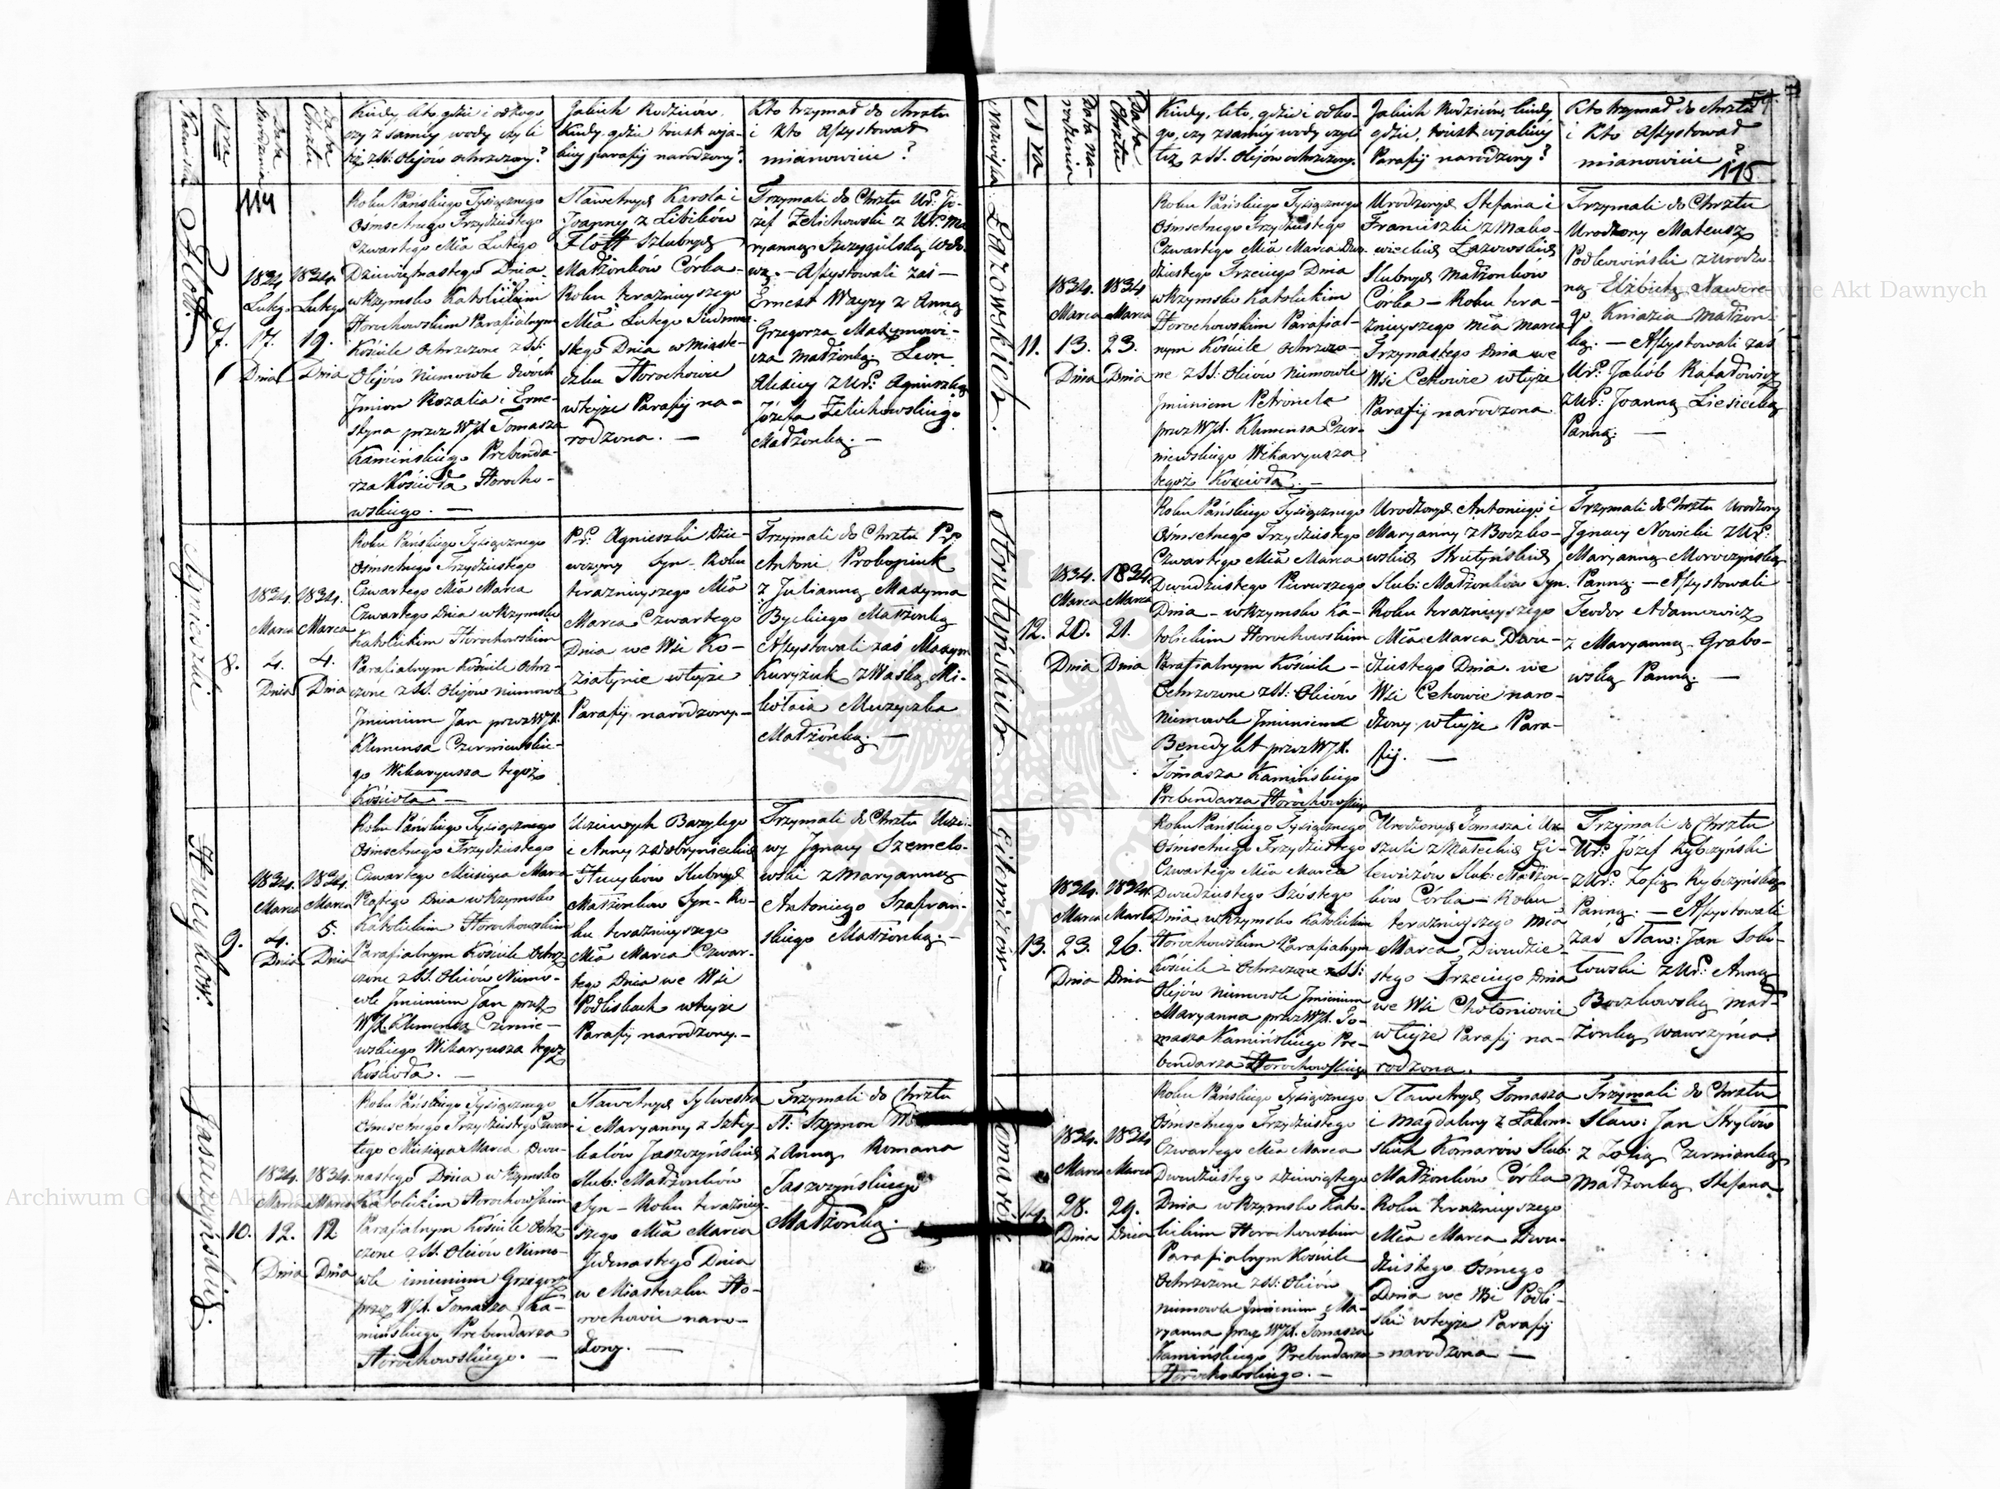 Nazwiska
Nra
Data
Narodzenia
Data
Chrztu
Kiedy, kto, gdzie i z kogo
czy z samey wody czyli
też z SS. Olejów ochrzczony?
Jakich Rodziców
kiedy, gdzie tudzież w ja-
kiey parafij narodzony?
Kto trzymał do chrztu
i kto Assystował
mianowicie?
114
Flott.
7.
1834.
Lutego
17.
Dnia
1834.
Lutego
19.
Dnia
Roku Pańskiego Tysiącznego
Ośmsetnego Trzydziestego
Czwartego Mca Lutego
Dziewiętnastego Dnia
w Rzymsko Katolickim
Horochowskim Parafialnym
Kościele Ochrzczone z SS.
Olejów Niemowle dwóch
Jmion Rozalia i Erne-
styna przez WJX. Tomasza
Kamińskiego Prebenda-
rza Kościoła Horocho-
wskiego. —
Sławetnych Karola i
Joanny z Libików
Flott Szlubnych
Małżonków Córka —
Roku teraznieyszego
Mca Lutego Siedmna-
stego Dnia w Miaste-
czku Horochowie
w teyże Parafij na-
rodzona. —
Trzymali do Chrztu Ur: Jó-
zef Zelichowski z Ur: Ma-
ryanną Szczygulską Wdo-
wą. — Assystowali zaś —
Ernest Wayzy z Anną
Grzegorza Maxymowi-
cza Małżonką Leon
Alexicy z Ur: Agnieszką
Józefa Zelichowskiego
Małżonką. —
Agnieszki
8.
1834.
Marca
4.
Dnia
1834.
Marca
4.
Dnia
Roku Pańskiego Tysiącznego
Ośmsetnego Trzydziestego
Czwartego Mca Marca
Czwartego Dnia w Rzymsko
Katolickim Horochowskim
Parafialnym Kościele Ochrz-
czone z SS. Olejów niemowle
Jmieniem Jan przez WJX.
Klemensa Czerniewskie-
go Wikaryusza tegoż
Kościoła —
Pr: Agnieszki Dzie-
wczyny Syn — Roku
teraznieyszego Mca
Marca Czwartego
Dnia we Wsi Ko-
ziatynie w teyże
Parafij narodzony. —
Trzymali do Chrztu Pr:
Antoni Prokopiuk
z Julianną Maxyma
Byckiego Małżonką
Assystowali zaś Maxym
Kuryżuk z Waśką Mi-
kołaia Muzyczka
Małżonką. —
Hucyków
9.
1834.
Marca
4.
Dnia
1834.
Marca
5.
Dnia
Roku Pańskiego Tysiącznego
Ośmsetnego Trzydziestego
Czwartego Miesiąca Marca
Piątego Dnia w Rzymsko
Katolickim Horochowskim
Parafialnym Kościele Ochrz-
czone z SS. Oleiów Niemo-
wle Jmieniem Jan przez
WJX. Klemensa Czernie-
wskiego Wikaryusza tegoż
Kościoła. —
Uczciwych Bazylego
i Anny z Dobrynieckich
Hucyków Slubnych
Małżonków Syn — Ro-
ku teraznieyszego
Mca Marca Czwar-
tego Dnia we Wsi
Podliskach w teyże
Parafij narodzony. —
Trzymali do Chrztu Uczci-
wy Jgnacy Szemelo-
wski z Maryanną
Antoniego Szafrań-
skiego Małżonką. —
Jaszczyńskich.
10.
1834.
Marca
12.
Dnia
1834.
Marca
12
Dnia
Roku Pańskiego Tysiącznego
Ośmsetnego Trzydziestego Czwar-
tego Miesiąca Marca Dwu-
nastego Dnia w Rzymsko
Katolickim Horochowskim
Parafialnym Kościele Ochrz-
czone z SS. Oleiów Niemo-
wle imieniem Grzegorz
przez WJX. Tomasza Ka-
mińskiego Prebendarza
Horochowskiego. —
Sławetnych Sylwestra
i Maryanny z Szky-
balów Jaszczyńskich
Slub: Małżonków
Syn — Roku teraźniey-
szego Mca Marca
Jedenastego Dnia
w Miasteczku Ho-
rochowie naro-
dzony. —
Trzymali do Chrztu
St: Szymon
z Anną Romana
Jaszczyńskiego
Małżonką. —
59.
115
Nazwiska
Nra
Data na-
rodzenia
Data
Chrztu
Kiedy, kto, gdzie i od ko-
go, czy z samey wody czyli
też z SS. Olejów ochrzczony.
Jakich Rodziców, kiedy
gdzie, tudzież w jakiey
Parafij narodzony?
Kto trzymał do chrztu
i kto Assystował
mianowicie?
Łazowskich.
11.
1834.
Marca
13.
Dnia
1834.
Marca
23.
Dnia
Roku Pańskiego Tysiącznego
Ośmsetnego Trzydziestego
Czwartego Mca Marca Dwu-
dziestego Trzeciego Dnia
w Rzymsko Katolickim
Horochowskim Parafial-
nym Kościele Ochrzczo-
ne z SS. Oleiów Niemowle
Jmieniem Petronela
przez WJX. Klemensa Czer-
niewskiego Wikaryusza
tegoż Kościoła. —
Urodzonych Stefana i
Franciszki z Mako-
wieckich Łazowskich
Slubnych Małżonków
Córka — Roku tera-
znieyszego Mca Marca
Trzynastego Dnia we
Wsi Cehowie w teyże
Parafij narodzona
Trzymali do Chrztu
Urodzony Mateusz
Podkowiński z Urodzo-
ną Elżbietą Xawere-
go Kniazia Małżon-
ką. — Assystowali zaś
Ur: Jakób Rafałowicz
z Ur: Joanną Liesiecką
Panną. —
Hrutyńskich
12.
1834.
Marca
20.
Dnia
1834.
Marca
21.
Dnia
Roku Pańskiego Tysiącznego
Ośmsetnego Trzydziestego
Czwartego Mca Marca
Dwudziestego Pierwszego
Dnia — w Rzymsko Ka-
tolickim Horochowskim
Parafialnym Kościele —
Ochrzczone z SS. Oleiów
Niemowle Jmieniem
Benedykt przez WJX.
Tomasza Kamińskiego
Prebendarza Horochowskiego
Urodzonych Antoniego i
Maryanny z Boczko-
wskich Hrutyńskich
Slub: Małżonków Syn
Roku teraznieyszego
Mca Marca Dwu-
dziestego Dnia. we
Wsi Cehowie naro-
dzony w teyże Para-
fij. —
Trzymali do Chrztu Urodzony
Jgnacy Nowicki z Ur:
Maryanną Moroczyńską
Panną — Assystowali
Teodor Adamowicz
z Maryanną Grabo-
wską Panną. —
Gilewiczów —
13.
1834.
Marca
23.
Dnia
1834.
Marca
26.
Dnia
Roku Pańskiego Tysiącznego
Ośmsetnego Trzydziestego
Czwartego Mca Marca
Dwudziestego Szóstego
Dnia w Rzymsko Katolickim
Horochowskim Parafialnym
Kościele Ochrzczone z SS:
Olejów Niemowle Jmieniem
Maryanna przez WJX. To-
masza Kamińskiego Pre-
bendarza Horochowskiego
Urodzonych Tomasza i Ur-
szuli z Małeckich Gi-
lewiczów Slub: Małżon-
ków Córka — Roku
teraznieyszego Mca
Marca Dwudzie-
stego Trzeciego Dnia
we Wsi Chołoniowie
w teyże Parafij na-
rodzona.
Trzymali do Chrztu
Ur: Józef Rybczyński
z Ur: Zofią Rybczyńską
Panną. — Assystowali
zaś Sław: Jan Sobo-
łowski z Ur: Anną
Boczkowską Mał-
żonką Wawrzyńca.
Komarów
14.
1834.
Marca
28.
Dnia
1834.
Marca
29.
Dnia
Roku Pańskiego Tysiącznego
Ośmsetnego Trzydziestego
Czwartego Mca Marca
Dwudziestego dziewiątego
Dnia w Rzymsko Kato-
lickim Horochowskim
Parafialnym Kościele
Ochrzczone z SS: Oleiów
niemowle Jmieniem Ma-
ryanna przez WJX. Tomasza
Kamińskiego Prebendarza
Horochowskiego. —
Sławetnych Tomasza
i Magdaleny z
Komarów Slub:
Małżonków Córka
Roku teraznieyszego
Mca Marca Dwu-
dziestego Ósmego
Dnia we Wsi Podli-
ski w teyże Parafij
narodzona —
Trzymali do Chrztu
Sław: Jan Hrytów
z Zofią Czerniańką
Małżonką Stefana
Archiwum Główne Akt Dawnych
Archiwum Główne Akt Dawnych